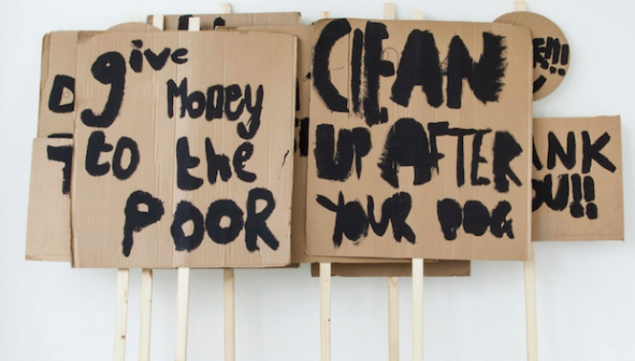 give
Money
to the
POOR
CLEAN
UP AFTER
YOUR DOG
ANK
OU!!